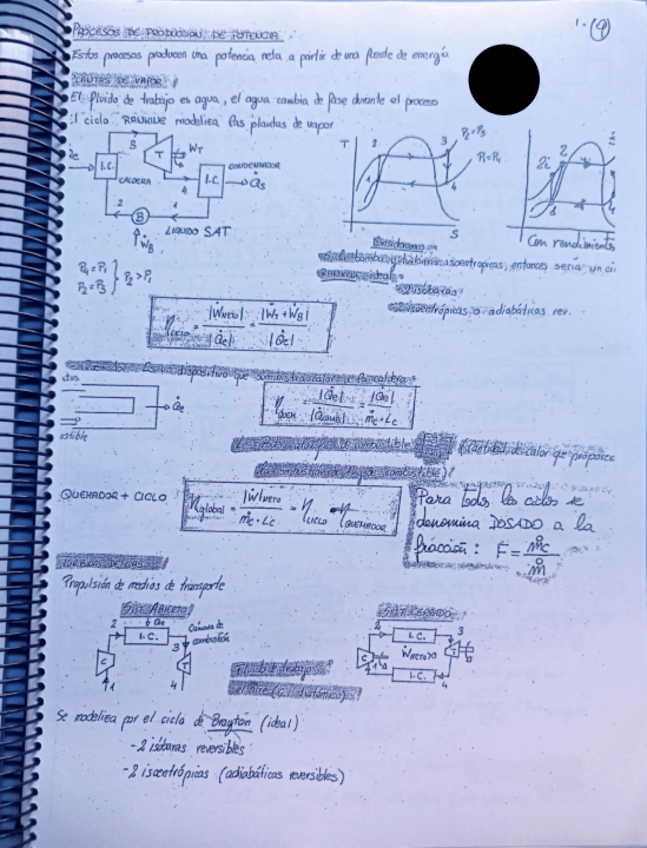 1-(9)
PROCESOS DE PRODUCCION DE POTENCIA
Estos procesos producen una potencia neta a partir de una fuente de energía
PLANTAS DE VAPOR
El fluido de trabajo es agua, el agua cambia de fase durante el proceso
El ciclo RANKINE modeliza las plantas de vapor
3 T WT
I.C. CALDERA
4 I.C. CONDENSADOR Qs
2 B 1
LIQUIDO SAT
WB
T 2 3 P2=P3
P1=P4
1 4
S
2i 2
1
Con rendimientos
P4 = P1
P2 = P3 } P2 > P1
Consideramos
bomba y turbinas isoentropicas, entonces sería un ci
RANKINE ideal
- 2 isóbaras
- 2 isoentrópicas o adiabáticas rev.
ηciclo = |WNETO| / |Qe| = |WT + WB| / |Qe|
Quemador: Es un dispositivo que suministra calor a la caldera.
Qe
ηQUEM = |Qe| / |Qcomb| = |Qe| / mc · Lc
(Cantidad de calor que proporc
la combustion de 1 kg de combustible)
QUEMADOR + CICLO
ηglobal = |W|NETO / mc · Lc = ηCICLO · ηQUEMADOR
Para todos los ciclos se
denomina DOSADO a la
fracción: F = mc / m
TURBINAS DE GAS
Propulsión de medios de transporte
SIST. ABIERTO
2 Qe I.C. 3 Cámara de combustión
C T
1 4
SIST. CERRADO
2 I.C. 3
C WNETO>0 T
1 I.C. 4
Fluido de trabajo
el aire (G.I. diatómico)
Se modeliza por el ciclo de Brayton (ideal)
- 2 isóbaras reversibles
- 2 isoentrópicas (adiabáticas reversibles)